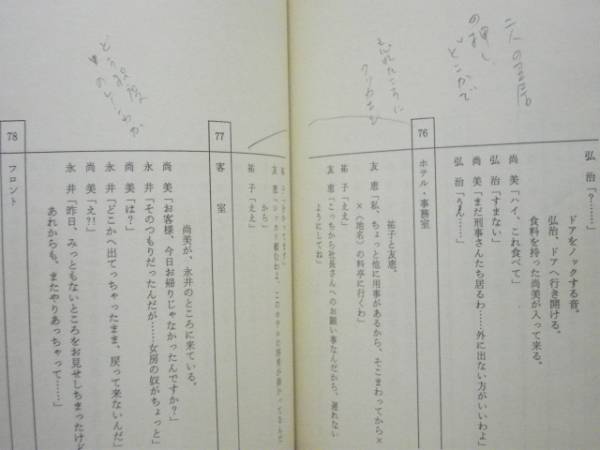 弘治「?……」
ドアをノックする音。
弘治、ドアへ行き開ける。
食料を持った尚美が入って来る。
尚美「ハイ、これ食べて」
弘治「すまない」
尚美「まだ刑事さんたち居るわ……外に出ない方がいいわよ」
弘治「うん……」
76 ホテル・事務室
祐子と友恵。
友恵「私、ちょっと他に用事があるから、そこまわってから×
×(地名)の料亭に行くわ」
祐子「ええ」
友恵「こっちから社長さんへのお願い事なんだから、遅れない
ようにしてね」
二人の芝居
の押し
どこかで
忘れたころに
から」
祐子「ええ」
77 客室
尚美が、永井のところに来ている。
尚美「お客様、今日お帰りじゃなかったんですか?」
永井「そのつもりだったんだが……女房の奴がちょっと」
尚美「は?」
永井「どこかへ出てっちゃったまま、戻って来ないんだ」
尚美「え?!」
永井「昨日、みっともないところをお見せしちまったけど
あれからも、またやりあっちゃって……」
78 フロント